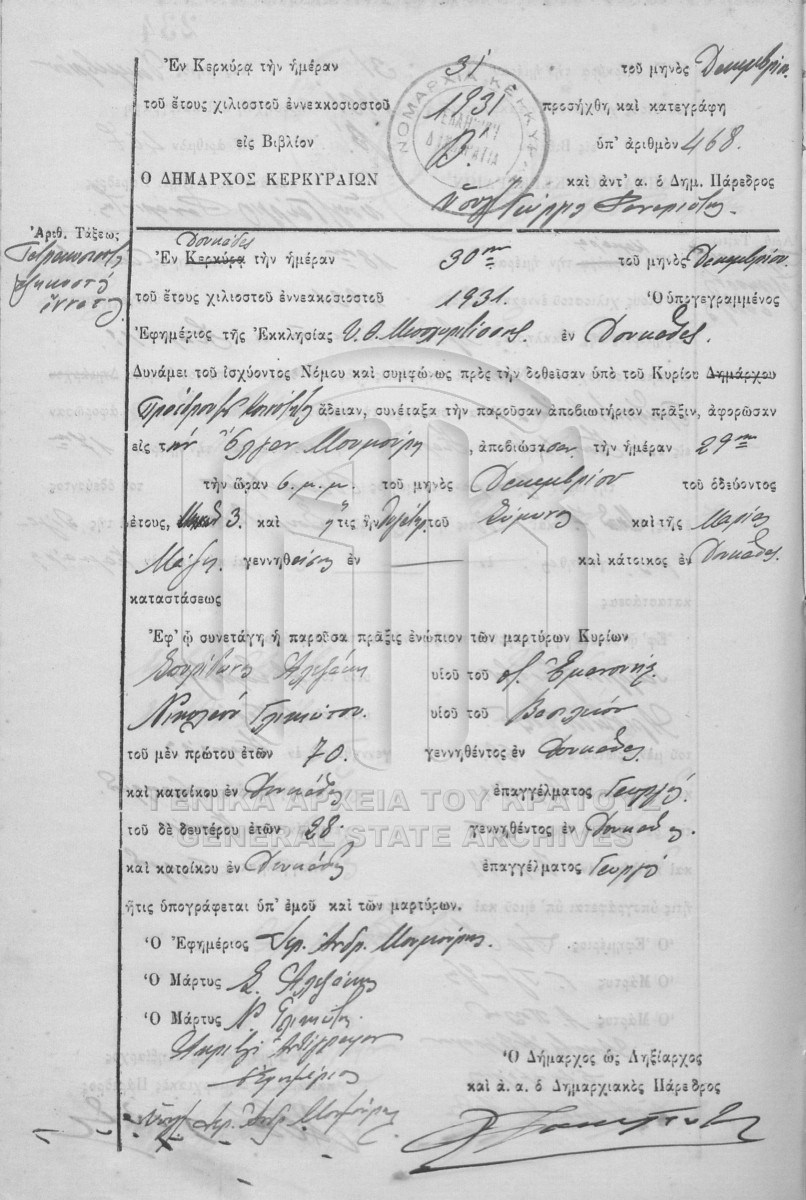 Ἐν Κερκύρᾳ τὴν ἡμέραν 31 τοῦ μηνὸς Δεκεμβρίου
τοῦ ἔτους χιλιοστοῦ ἐννεακοσιοστοῦ 1931 προσήχθη καὶ κατεγράφη
εἰς Βιβλίον Β. ὑπ' ἀριθμὸν 468.
Ο ΔΗΜΑΡΧΟΣ ΚΕΡΚΥΡΑΙΩΝ καὶ ἀντ' α. ὁ Δημ. Πάρεδρος
ΝΟΜΑΡΧΙΑ ΚΕΡΚΥΡ
Ἀριθ. Τάξεως
Δουκάδες
Ἐν Κερκύρᾳ τὴν ἡμέραν 30ην τοῦ μηνὸς Δεκεμβρίου
τοῦ ἔτους χιλιοστοῦ ἐννεακοσιοστοῦ 1931. Ὁ ὑπογεγραμμένος
Ἐφημέριος τῆς Ἐκκλησίας Υ. Θ. ἐν Δουκάδες.
Δυνάμει τοῦ ἰσχύοντος Νόμου καὶ συμφώνως πρὸς τὴν δοθεῖσαν ὑπὸ τοῦ Κυρίου Δημάρχου
Προέδρου Κοινότητος ἄδειαν, συνέταξα τὴν παροῦσαν ἀποβιωτήριον πρᾶξιν, ἀφορῶσαν
εἰς τὴν Ἑλένην Μουμούρη, ἀποβιώσασαν τὴν ἡμέραν 29ην
τὴν ὥραν 6 μ.μ. τοῦ μηνὸς Δεκεμβρίου τοῦ ὁδεύοντος
ἔτους, 3. καὶ ἥτις ἦν τοῦ καὶ τῆς Μαρίας
γεννηθεῖσης ἐν — καὶ κάτοικος ἐν Δουκάδες.
καταστάσεως
Ἐφ' ᾧ συνετάγη ἡ παροῦσα πρᾶξις ἐνώπιον τῶν μαρτύρων Κυρίων
Σπυρίδωνος Ἀλεξάκη υἱοῦ τοῦ Ἐμανουήλ
Νικολάου Γλικιώτου. υἱοῦ τοῦ Βασιλείου
τοῦ μὲν πρώτου ἐτῶν 70. γεννηθέντος ἐν Δουκάδες
καὶ κατοίκου ἐν Δουκάδες ἐπαγγέλματος Γεωργοῦ
τοῦ δὲ δευτέρου ἐτῶν 28. γεννηθέντος ἐν Δουκάδες
καὶ κατοίκου ἐν Δουκάδες ἐπαγγέλματος Γεωργοῦ
ἥτις ὑπογράφεται ὑπ' ἐμοῦ καὶ τῶν μαρτύρων.
Ὁ Ἐφημέριος Ἱερ. Ἀνδρ. Μουμούρης
Ὁ Μάρτυς Σ. Ἀλεξάκης
Ὁ Μάρτυς Ν. Γλικιώτης
Ἀκριβὲς Ἀντίγραφον
Ὁ Ἐφημέριος
Ἱερ. Ἀνδρ. Μουμούρης
Ὁ Δήμαρχος ὡς Ληξίαρχος
καὶ ἀ. α. ὁ Δημαρχιακὸς Πάρεδρος
ΓΕΝΙΚΑ ΑΡΧΕΙΑ ΤΟΥ ΚΡΑΤΟΥΣ
GENERAL STATE ARCHIVES